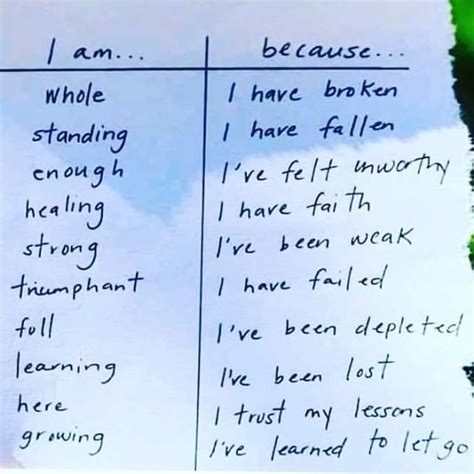 I am... because...
whole I have broken
standing I have fallen
enough I've felt unworthy
healing I have faith
strong I've been weak
triumphant I have failed
full I've been depleted
learning I've been lost
here I trust my lessons
growing I've learned to let go